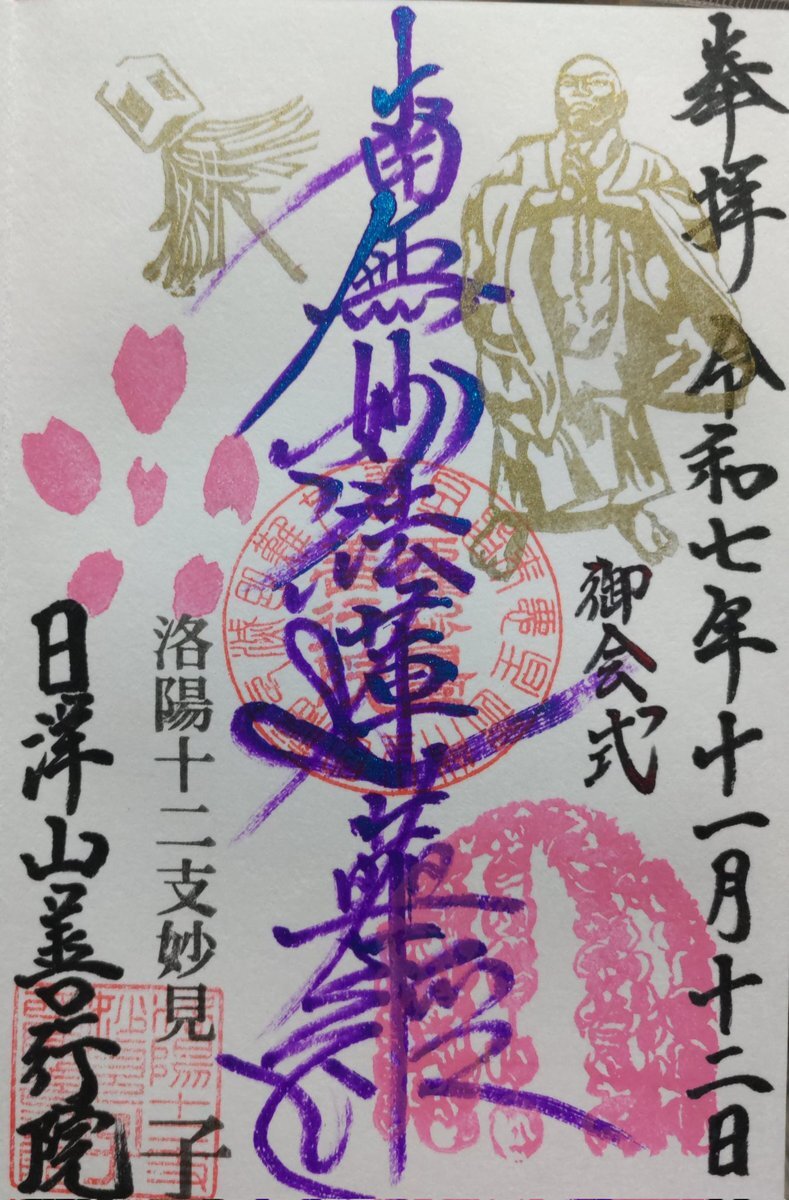 奉拝 令和七年十一月十二日
御会式
南無妙法蓮華経
洛陽十二支妙見 子
日洋山善行院